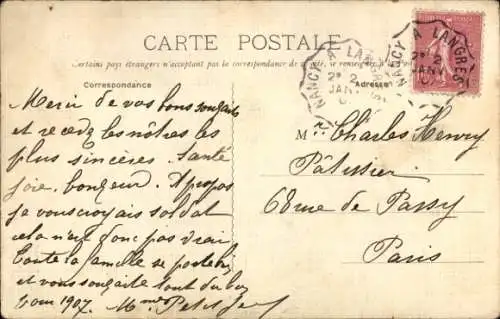 CARTE POSTALE
Certains pays étrangers n'acceptant pas la correspondance de ce côté, se renseigner à la
Correspondance
Adresse
NANCY A LANGRES
2E 2
JANV
NANCY A LANGRES
2E 2
JANV
Merci de vos bons souhaits
et recevez les nôtres les
plus sincères. Santé
joie, bonheur. A propos
je vous croyais soldat
cela n'est donc pas vrai
Toute la famille se porte bien
et vous souhaite tout du bon
pour 1907. Mme Petit
M. Charles Henry
Pâtissier
68 rue de Passy
Paris